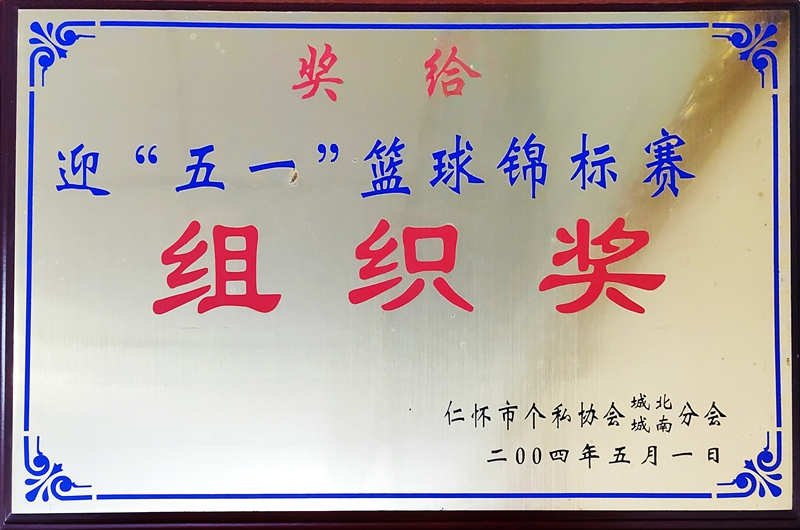 奖给
迎“五一”篮球锦标赛
组织奖
仁怀市个私协会城北城南分会
二00四年五月一日